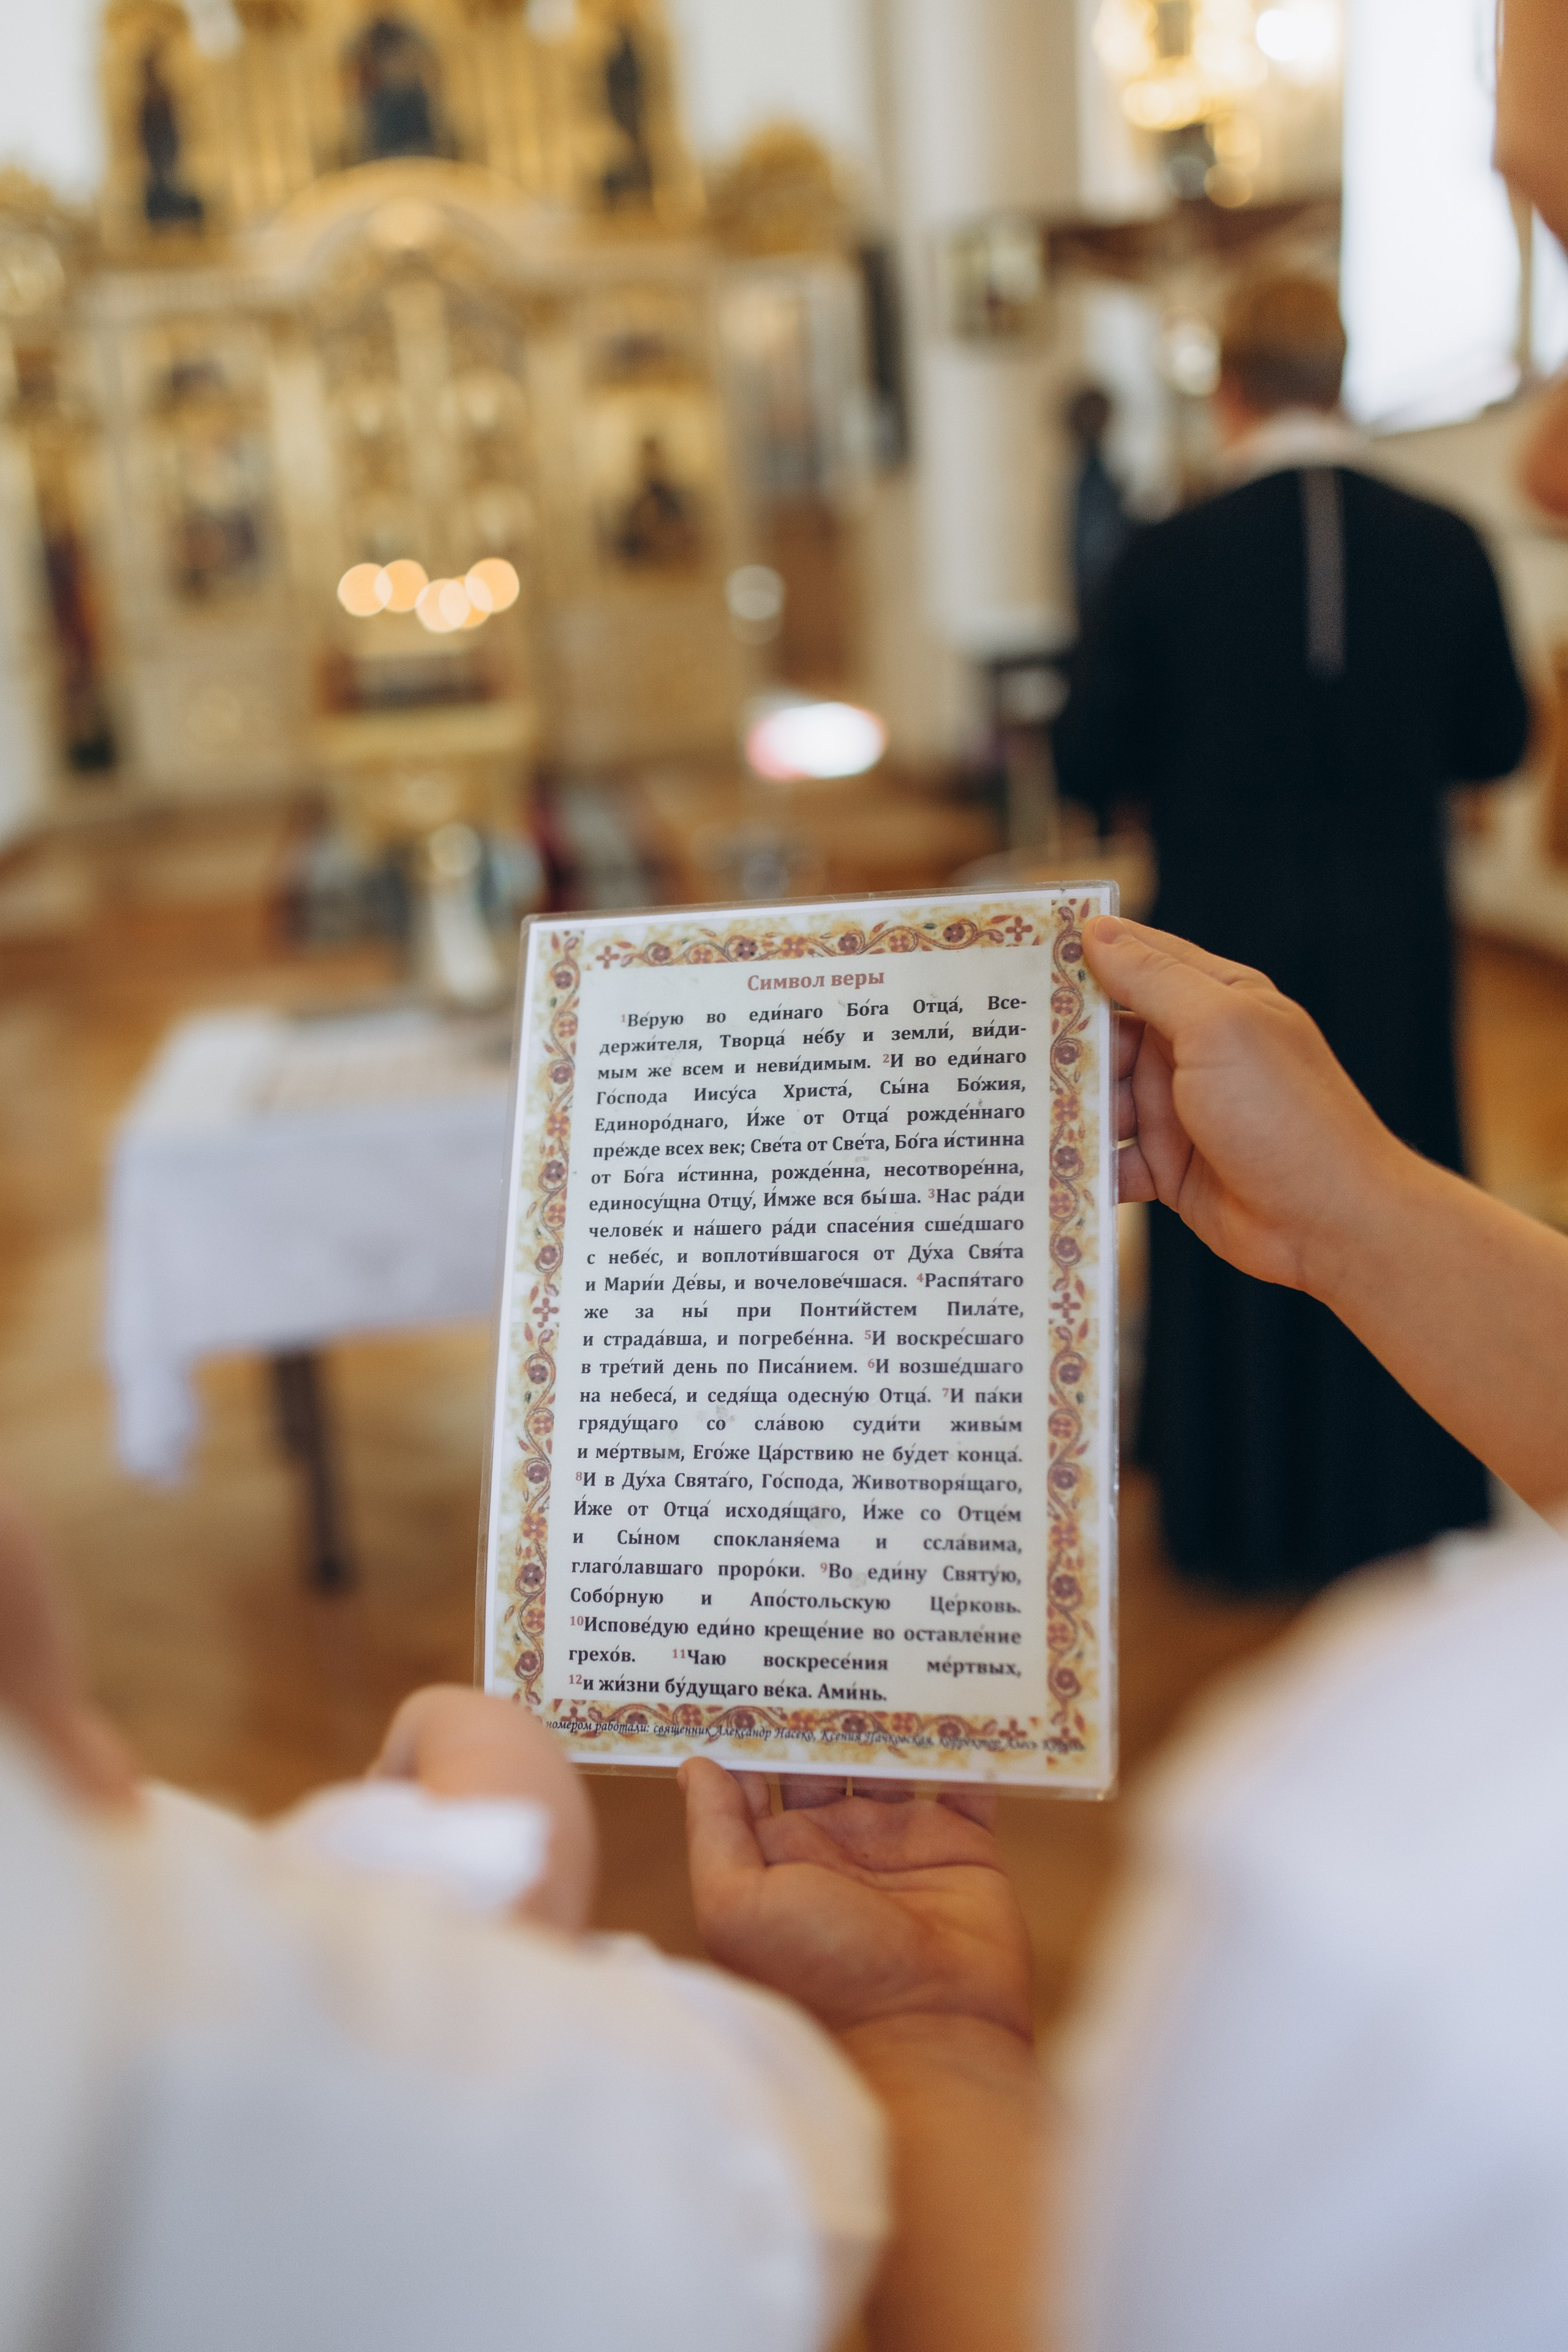 Символ веры
¹Ве́рую во еди́наго Бо́га Отца́, Все-
держи́теля, Творца́ не́бу и земли́, ви́ди-
мым же всем и неви́димым. ²И во еди́наго
Го́спода Иису́са Христа́, Сы́на Бо́жия,
Единоро́днаго, И́же от Отца́ рожде́ннаго
пре́жде всех век; Све́та от Све́та, Бо́га и́стинна
от Бо́га и́стинна, рожде́нна, несотворе́нна,
единосу́щна Отцу́, И́мже вся бы́ша. ³Нас ра́ди
челове́к и на́шего ра́ди спасе́ния сше́дшаго
с небе́с, и воплоти́вшагося от Ду́ха Свя́та
и Мари́и Де́вы, и вочелове́чшася. ⁴Распя́таго
же за ны́ при Понти́йстем Пила́те,
и страда́вша, и погребе́нна. ⁵И воскре́сшаго
в тре́тий день по Писа́нием. ⁶И возше́дшаго
на небеса́, и седя́ща одесну́ю Отца́. ⁷И па́ки
гряду́щаго со сла́вою суди́ти живы́м
и ме́ртвым, Его́же Ца́рствию не бу́дет конца́.
⁸И в Ду́ха Свята́го, Го́спода, Животворя́щаго,
И́же от Отца́ исходя́щаго, И́же со Отце́м
и Сы́ном спокланя́ема и ссла́вима,
глаго́лавшаго проро́ки. ⁹Во еди́ну Святу́ю,
Собо́рную и Апо́стольскую Це́рковь.
¹⁰Испове́дую еди́но креще́ние во оставле́ние
грехо́в. ¹¹Ча́ю воскресе́ния ме́ртвых,
¹²и жи́зни бу́дущаго ве́ка. Ами́нь.
номером работали: священник Александр Насеко, Ксения Пачковская, корректор